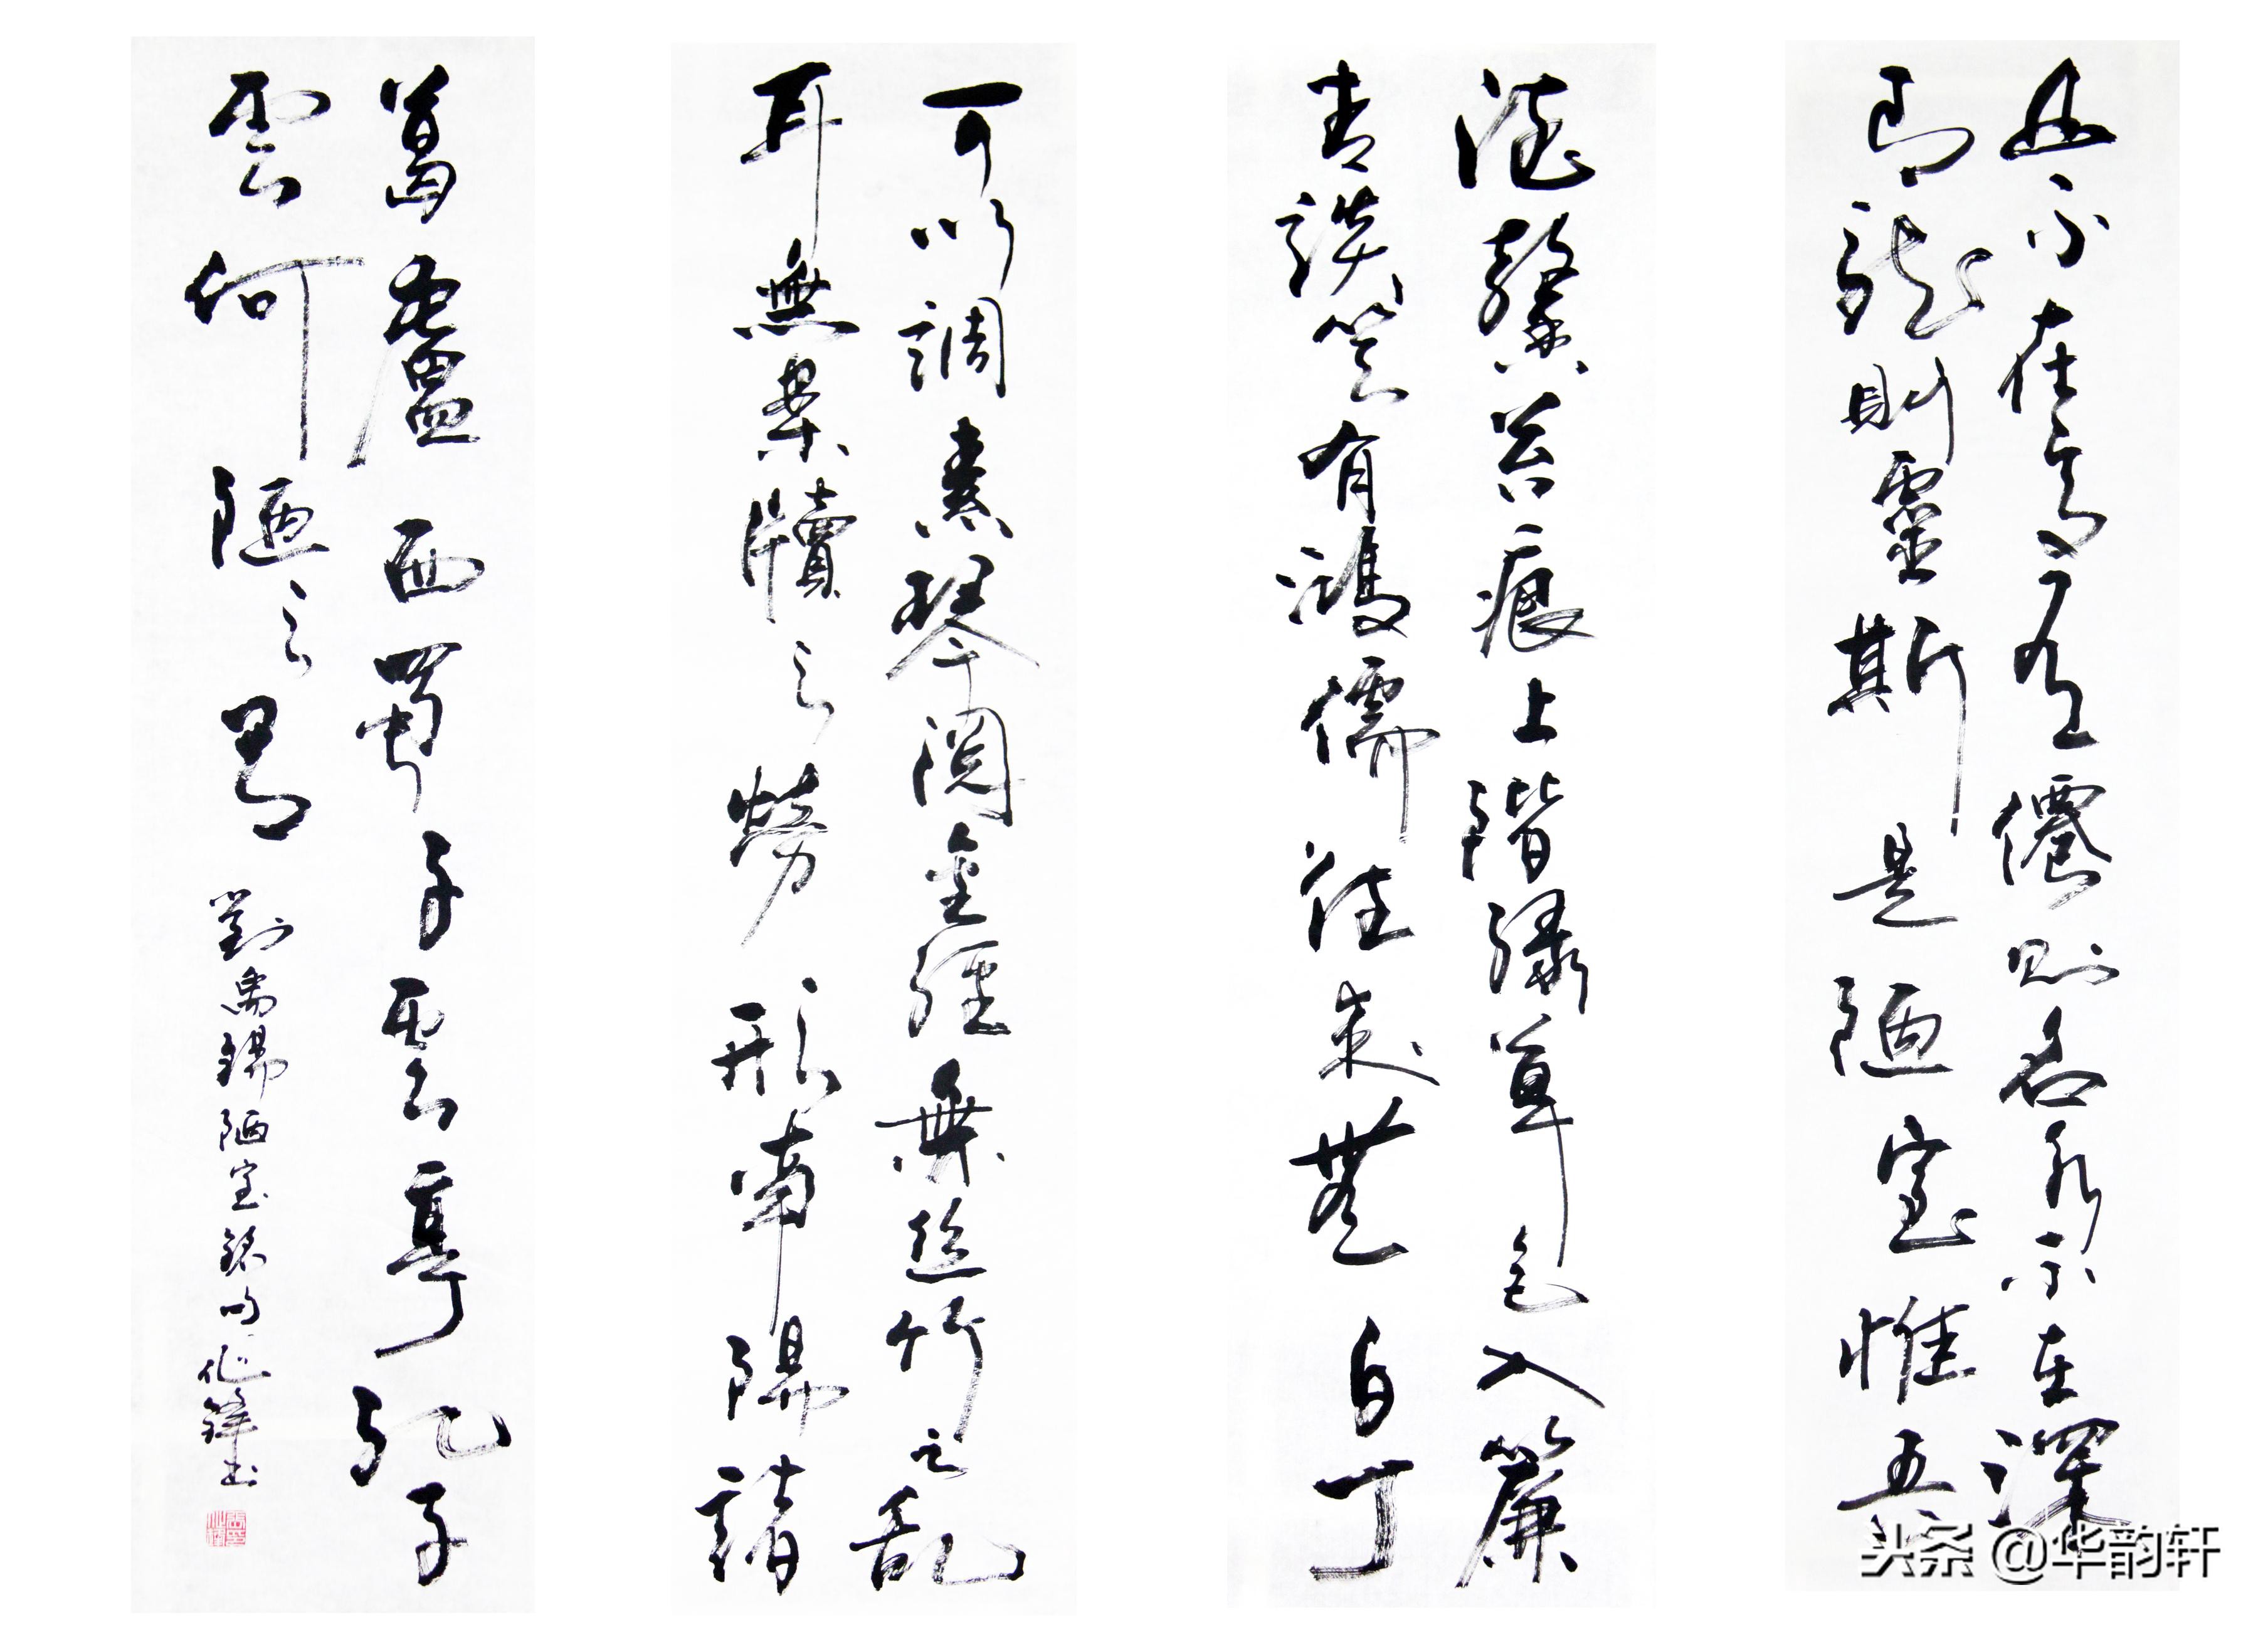 山不在高有僊則名水不在深
有龍則靈斯是陋室惟吾
德馨苔痕上階綠草色入簾
青談笑有鴻儒往来無白丁
可以調素琴閱金經無絲竹之乱
耳無案牘之勞形南陽諸
葛廬西蜀子雲亭孔子
雲何陋之有
劉禹錫陋室銘
头条 @华韵轩